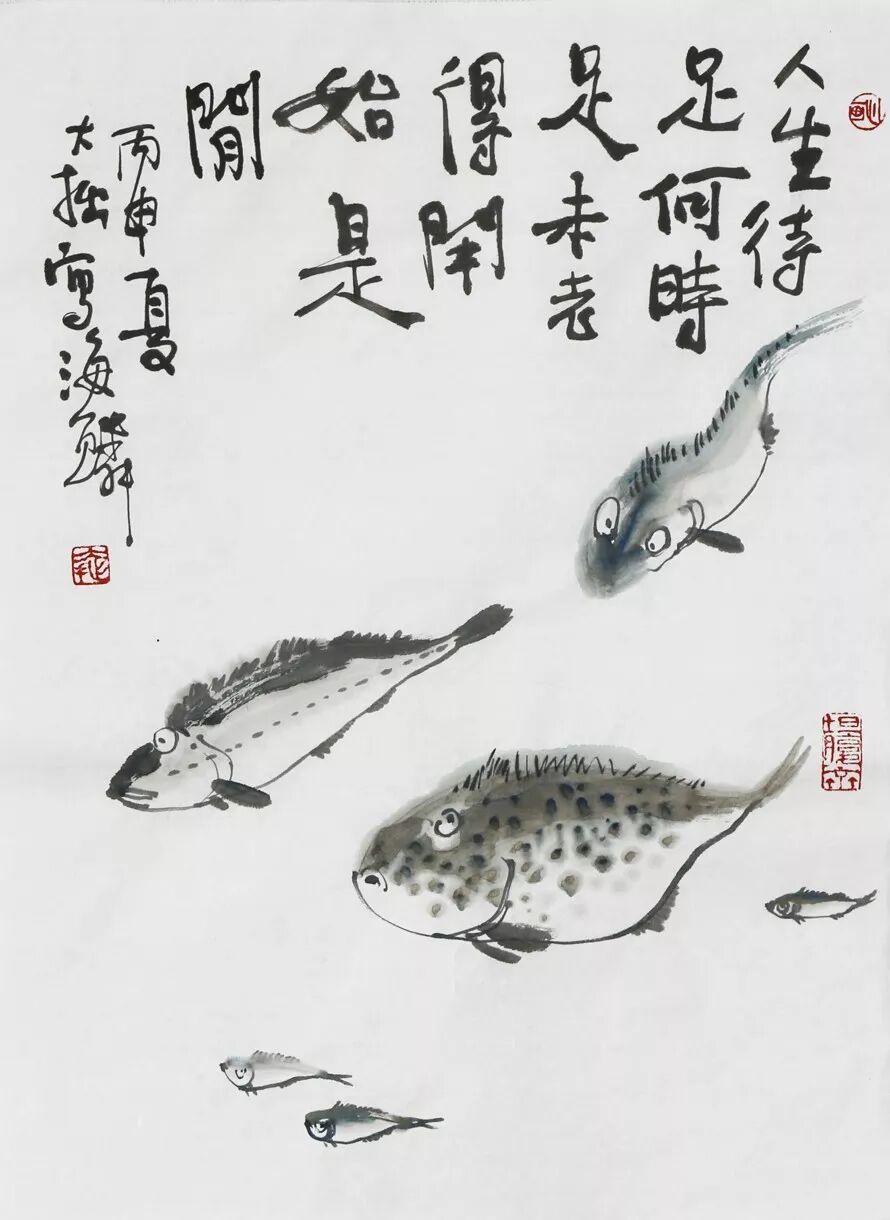 人生待
足何時
足未老
得閑
始是
閒
丙申夏
大拙寫海鱗